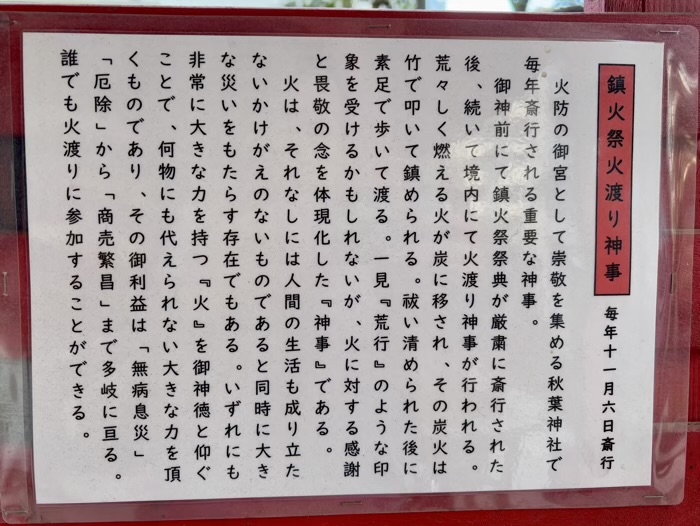 鎮火祭火渡り神事 毎年十一月六日斎行
火防の御宮として崇敬を集める秋葉神社で
毎年斎行される重要な神事。
御神前にて鎮火祭祭典が厳粛に斎行された
後、続いて境内にて火渡り神事が行われる。
荒々しく燃える火が炭に移され、その炭火は
竹で叩いて鎮められる。祓い清められた後に
素足で歩いて渡る。一見『荒行』のような印
象を受けるかもしれないが、火に対する感謝
と畏敬の念を体現化した『神事』である。
火は、それなしには人間の生活も成り立た
ないかけがえのないものであると同時に大き
な災いをもたらす存在でもある。いずれにも
非常に大きな力を持つ『火』を御神徳と仰ぐ
ことで、何物にも代えられない大きな力を頂
くものであり、その御利益は「無病息災」
「厄除」から「商売繁昌」まで多岐に亘る。
誰でも火渡りに参加することができる。